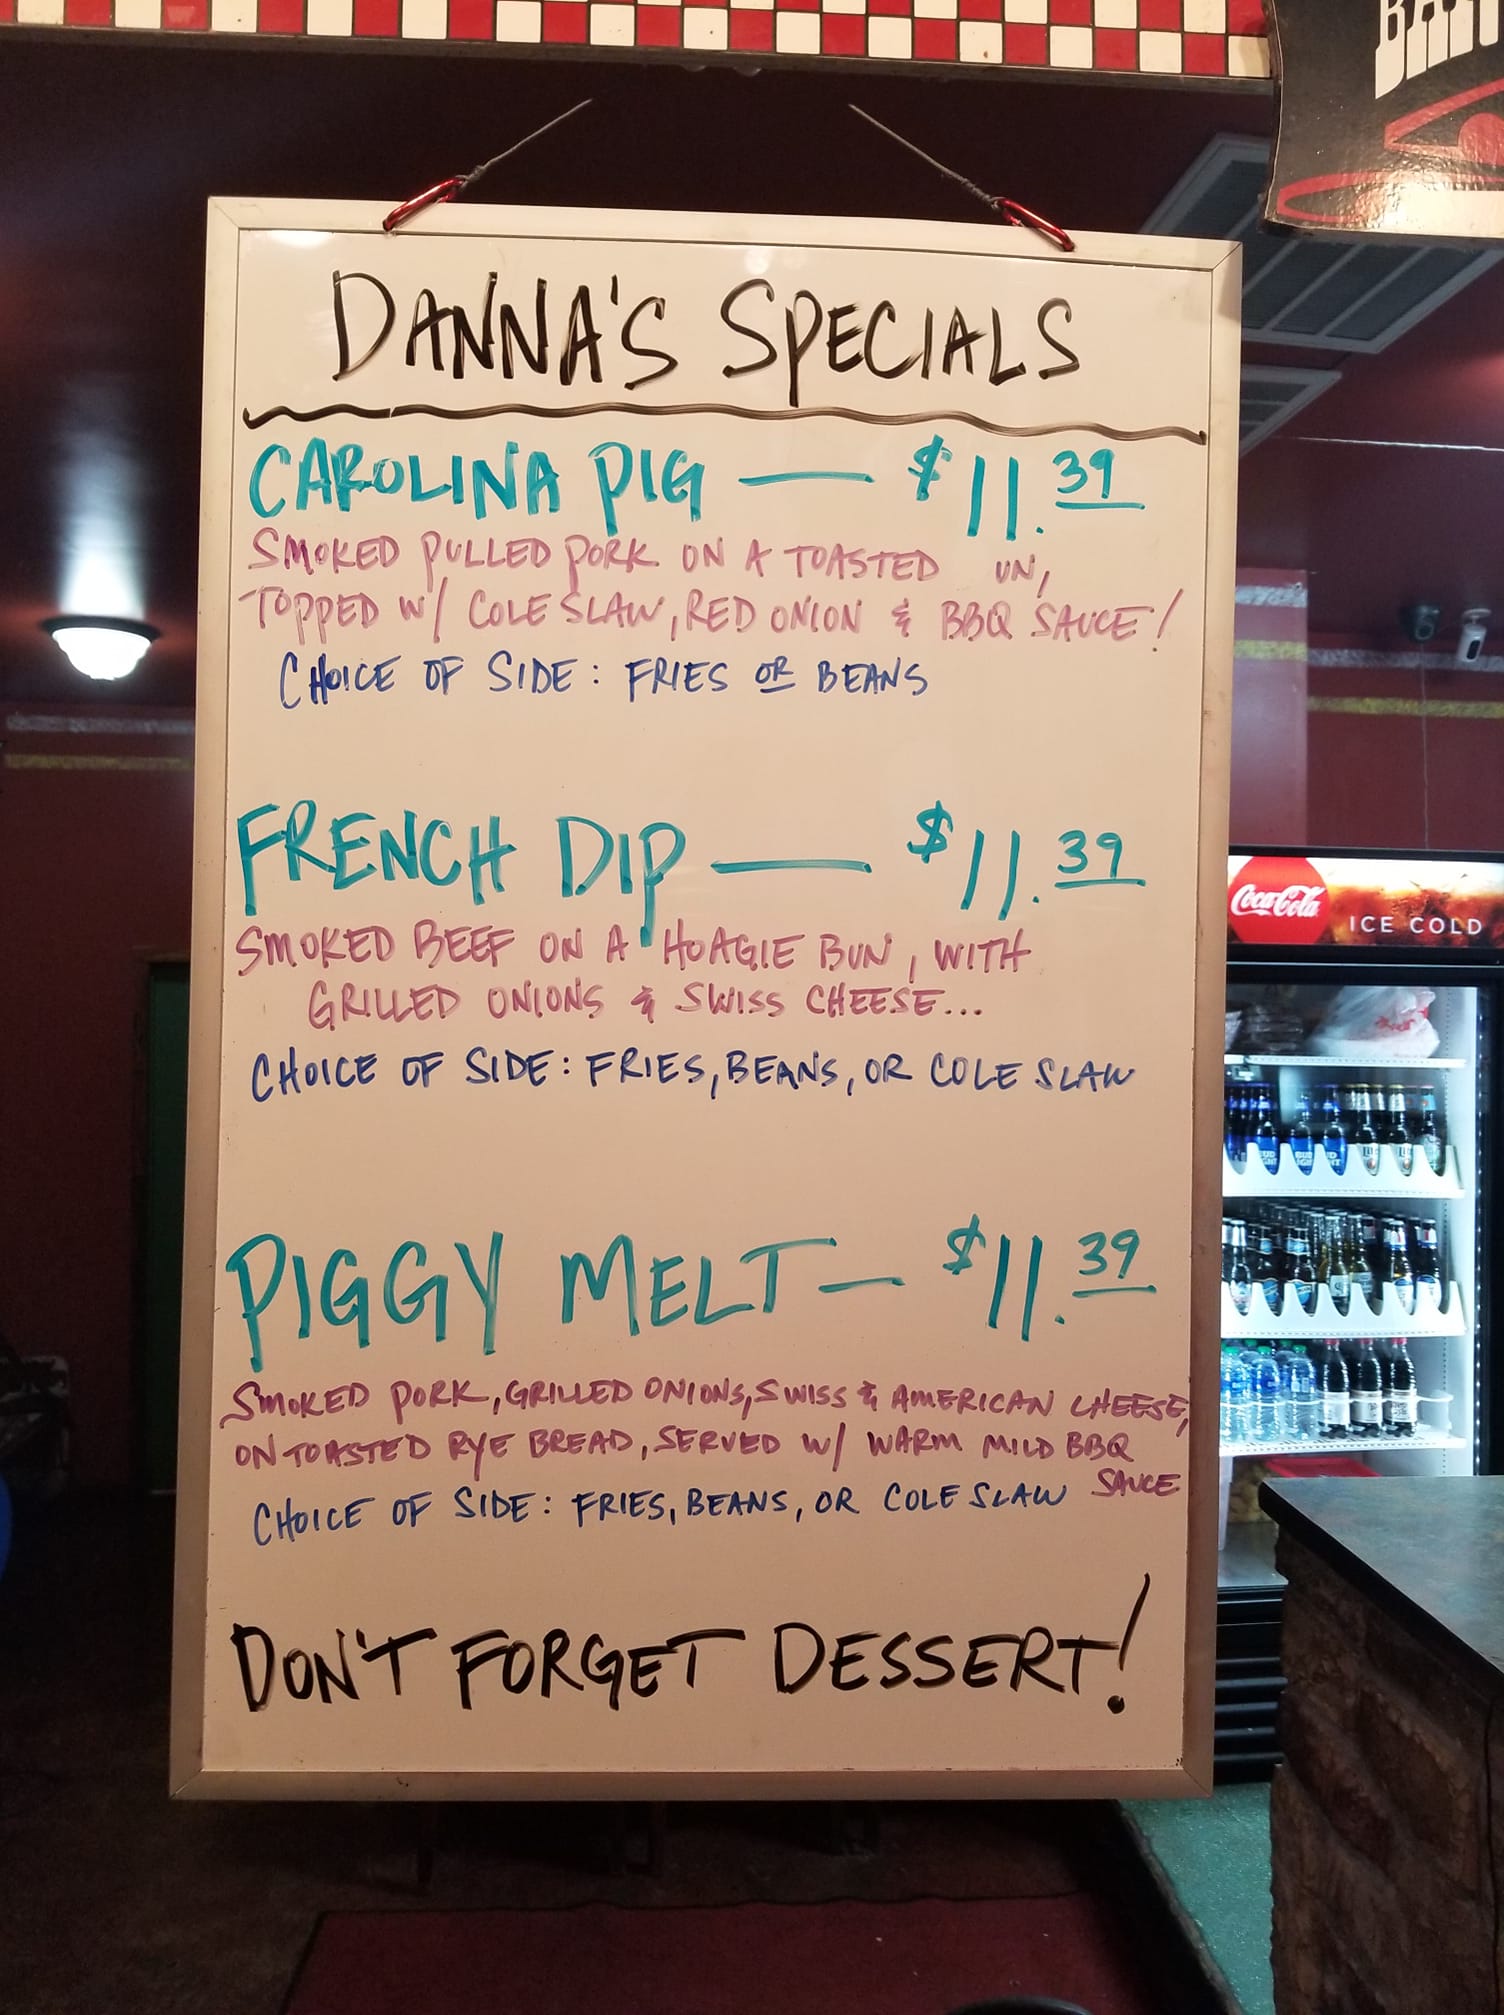 DANNA'S SPECIALS
CAROLINA PIG — $11.39
SMOKED PULLED PORK ON A TOASTED UN,
TOPPED W/ COLE SLAW, RED ONION & BBQ SAUCE!
CHOICE OF SIDE: FRIES OR BEANS
FRENCH DIP — $11.39
SMOKED BEEF ON A HOAGIE BUN, WITH
GRILLED ONIONS & SWISS CHEESE...
CHOICE OF SIDE: FRIES, BEANS, OR COLE SLAW
PIGGY MELT — $11.39
SMOKED PORK, GRILLED ONIONS, SWISS & AMERICAN CHEESE,
ON TOASTED RYE BREAD, SERVED W/ WARM MILD BBQ
SAUCE
CHOICE OF SIDE: FRIES, BEANS, OR COLE SLAW
DON'T FORGET DESSERT!
Coca-Cola
ICE COLD